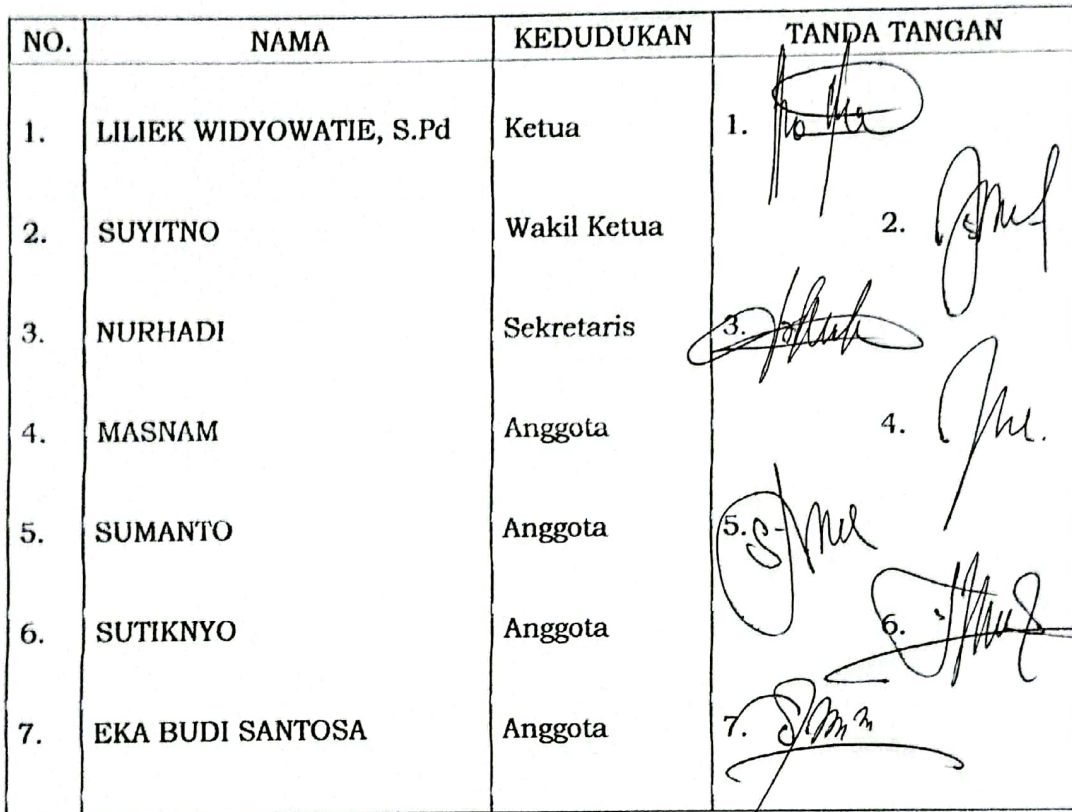 NO. NAMA KEDUDUKAN TANDA TANGAN
1. LILIEK WIDYOWATIE, S.Pd Ketua 1.
2. SUYITNO Wakil Ketua 2.
3. NURHADI Sekretaris 3.
4. MASNAM Anggota 4.
5. SUMANTO Anggota 5.
6. SUTIKNYO Anggota 6.
7. EKA BUDI SANTOSA Anggota 7.